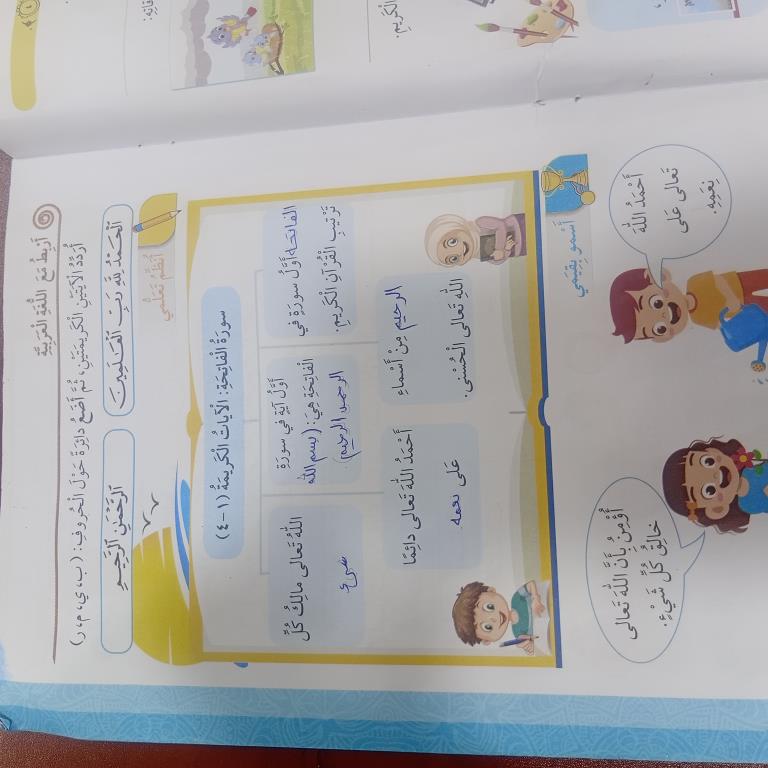 أَرْبِطُ مَعَ اللُّغَةِ الْعَرَبِيَّةِ
أُرَدِّدُ الْآيَتَيْنِ الْكَرِيمَتَيْنِ، ثُمَّ أَضَعُ دائِرَةً حَوْلَ الْحُروفِ: (ب، ي، م، ر)
الْحَمْدُ لِلَّهِ رَبِّ الْعَالَمِينَ
الرَّحْمَٰنِ الرَّحِيمِ
أُنَظِّمُ تَعَلُّمي
سورَةُ الْفَاتِحَةِ: الْآياتُ الْكَريمَةُ (١-٤)
الفاتحة أَوَّلُ سورَةٍ في
تَرْتيبِ الْقُرْآنِ الْكَريمِ.
أَوَّلُ آيَةٍ في سورَةِ
الْفاتِحَةِ هِيَ: (بسم الله
الرحمن الرحيم)
اللهُ تَعالى مالِكُ كُلِّ
شيء
الرحيم مِنْ أَسْماءِ
اللهِ تَعالى الْحُسْنى.
أَحْمَدُ اللهَ تَعالى دائِمًا
عَلى نعمه
أَسْمو بِقِيَمي
أَحْمَدُ اللهَ
تَعالى عَلى
نِعَمِهِ.
أُؤْمِنُ بِأَنَّ اللهَ تَعالى
خالِقُ كُلِّ شَيْءٍ.
الْكَريمِ.